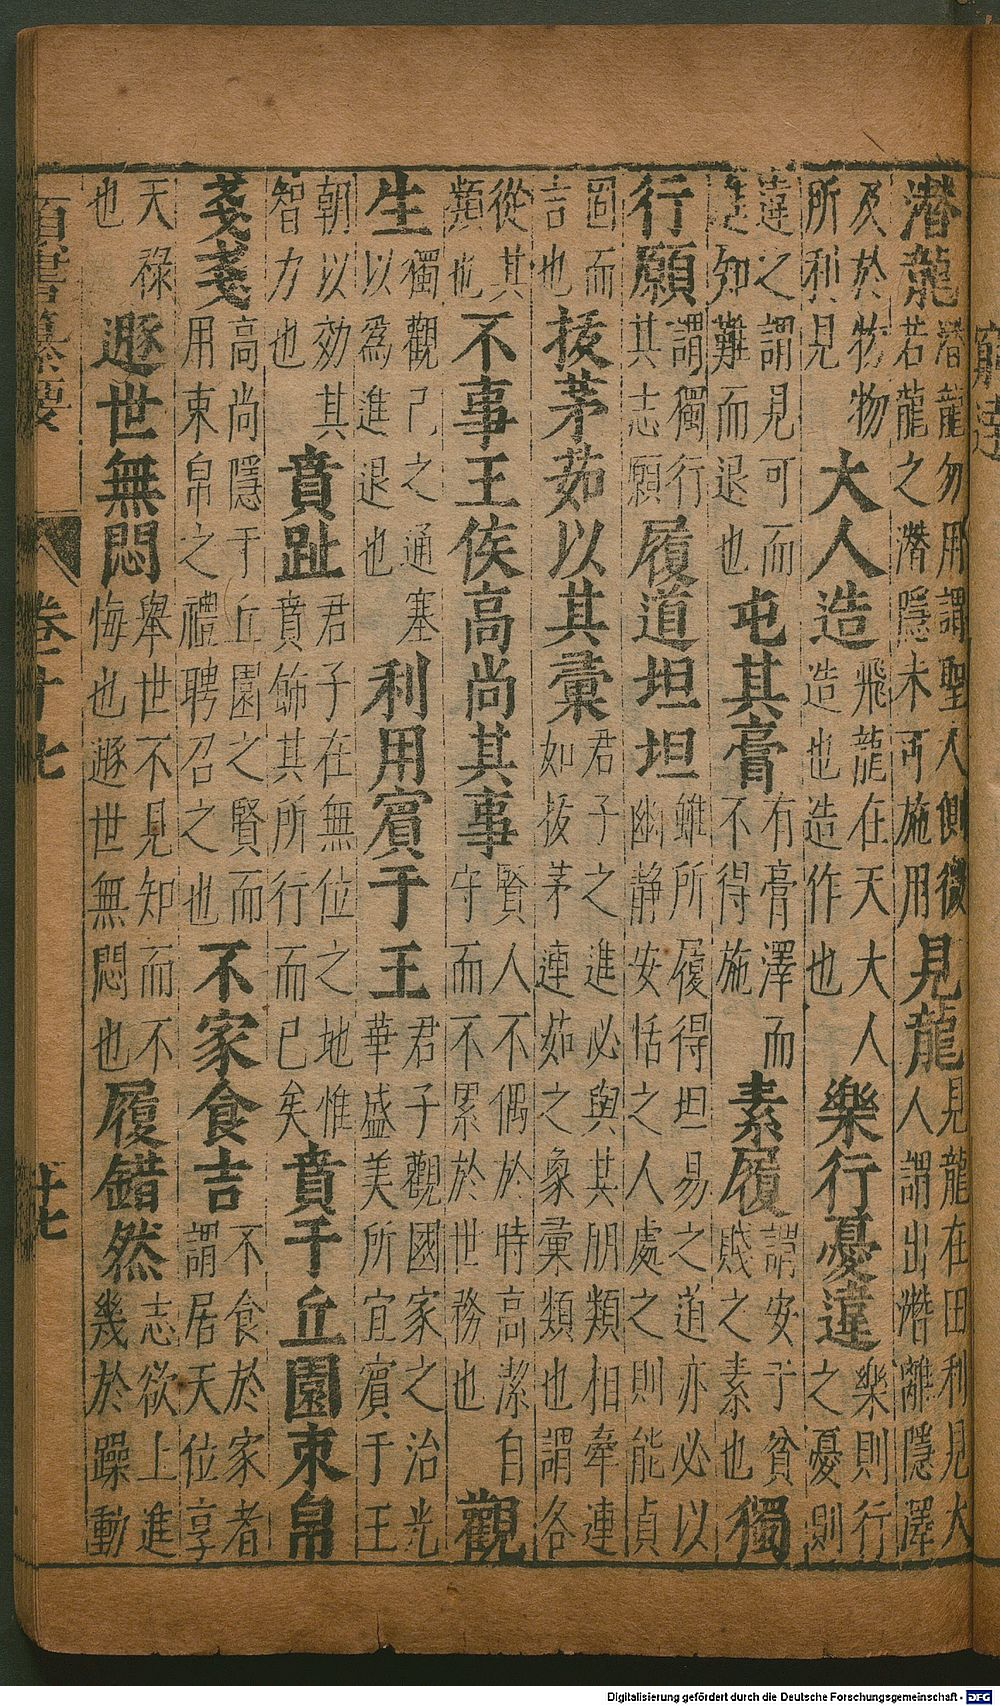 窮達
潛龍潛龍勿用謂聖人側微若龍之潛隱未可施用見龍見龍在田利見大人謂出潛離隱澤
及於物物所利見大人造飛龍在天大人造也造作也樂行憂違樂則行之憂則
違之謂見可而進知難而退也屯其膏有膏澤而不得施素履謂安于貧賤之素也獨
行願謂獨行其志願履道坦坦雖所履得坦易之道亦必以幽靜安恬之人處之則能貞
固而言也拔茅茹以其彙君子之進必與其朋類相牽連如拔茅連茹之象彙類也謂各
從其類也不事王侯高尚其事賢人不偶於時高潔自守而不累於世務也觀
生獨觀己之通塞以為進退也利用賓于王君子觀國家之治光華盛美所宜賓于王
朝以効其智力也賁趾君子在無位之地惟賁飾其所行而已矣賁于丘園束帛
戔戔高尚隱于丘園之賢而用束帛之禮聘召之也不家食吉不食於家者謂居天位享
天祿也遯世無悶舉世不見知而不悔也遯世無悶也履錯然志欲上進幾於躁動
卷廿七 廿七
Digitalisierung gefördert durch die Deutsche Forschungsgemeinschaft - DFG